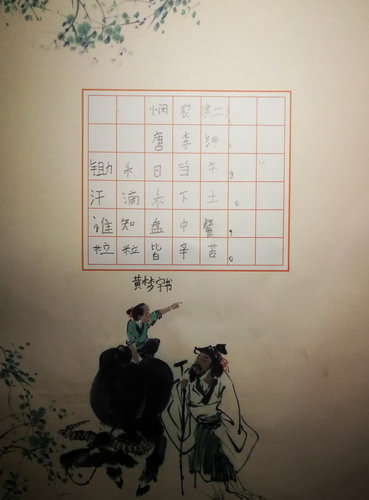 悯农其二
唐李绅
锄禾日当午,
汗滴禾下土。
谁知盘中餐,
粒粒皆辛苦。
黄梦宇书